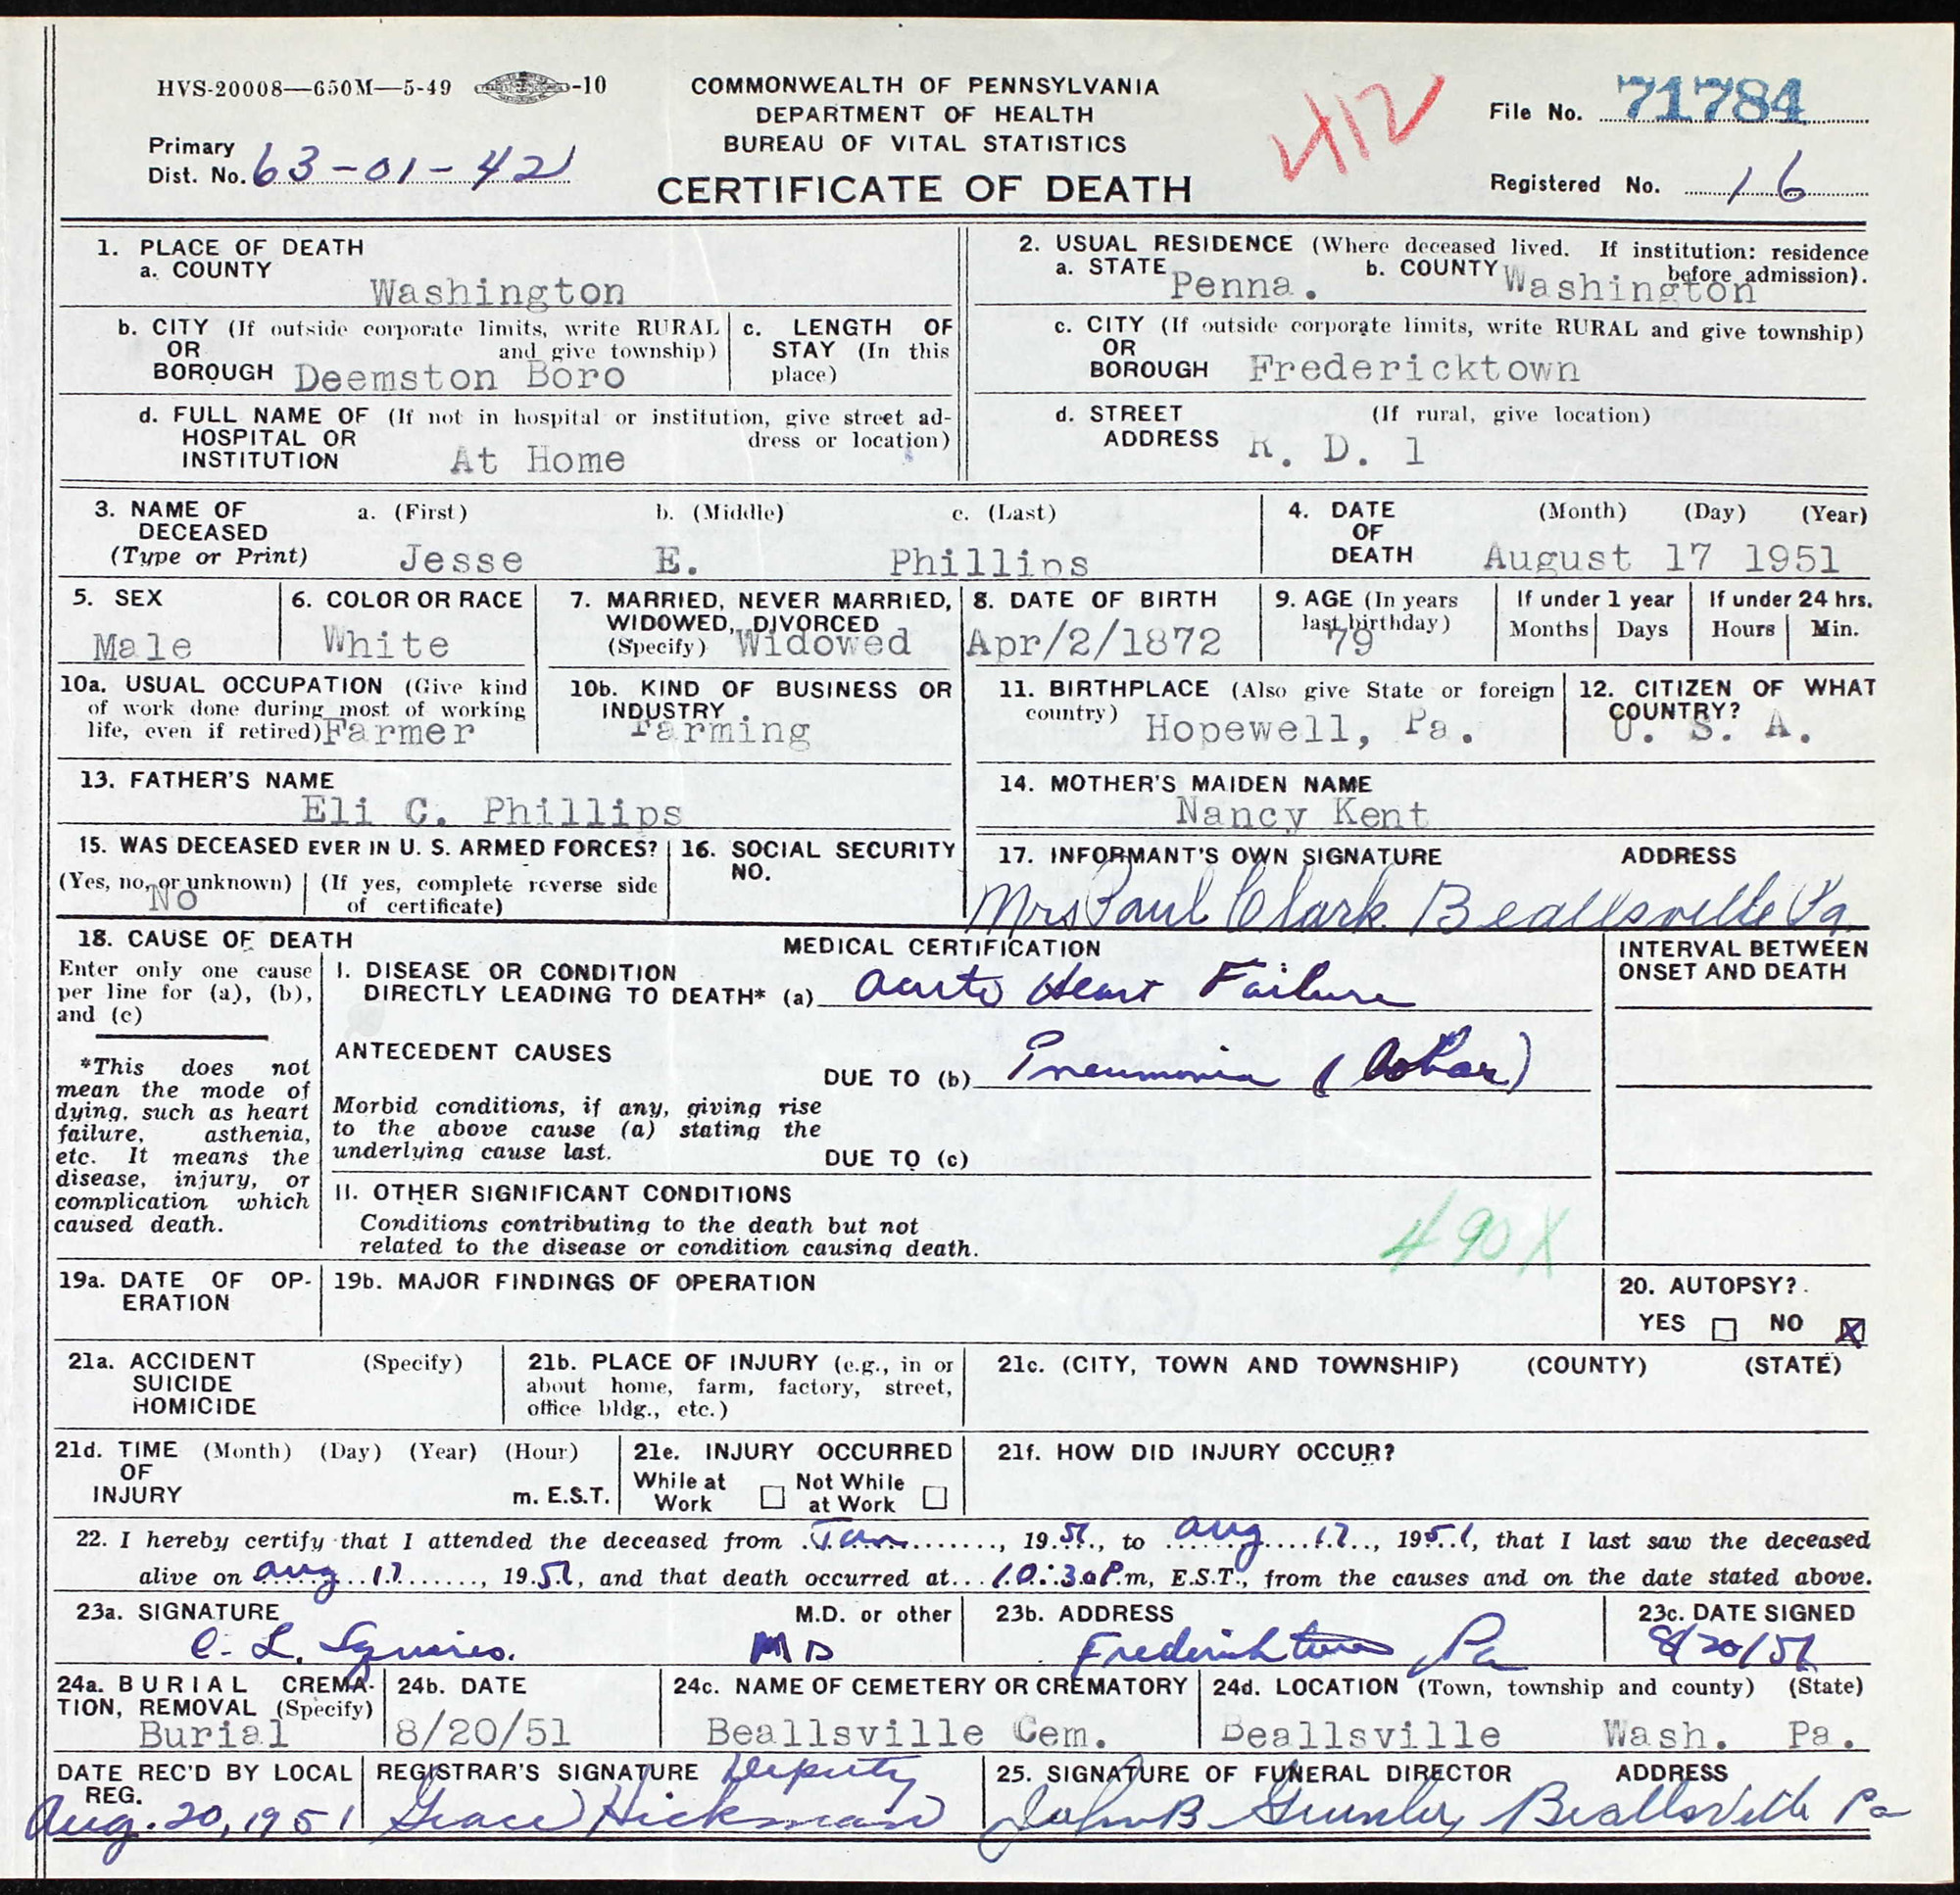 HVS-20008—650M—5-49 -10
COMMONWEALTH OF PENNSYLVANIA
DEPARTMENT OF HEALTH
BUREAU OF VITAL STATISTICS
CERTIFICATE OF DEATH
412
File No. 71784
Primary
Dist. No. 63-01-42
Registered No. 16
1. PLACE OF DEATH
a. COUNTY
Washington
2. USUAL RESIDENCE (Where deceased lived. If institution: residence
before admission).
a. STATE Penna. b. COUNTY Washington
b. CITY (If outside corporate limits, write RURAL
OR and give township)
BOROUGH Deemston Boro
c. LENGTH OF
STAY (In this
place)
c. CITY (If outside corporate limits, write RURAL and give township)
OR
BOROUGH Fredericktown
d. FULL NAME OF (If not in hospital or institution, give street ad-
HOSPITAL OR dress or location)
INSTITUTION At Home
d. STREET (If rural, give location)
ADDRESS R. D. 1
3. NAME OF a. (First) b. (Middle) c. (Last)
DECEASED
(Type or Print) Jesse E. Phillips
4. DATE (Month) (Day) (Year)
OF
DEATH August 17 1951
5. SEX
Male
6. COLOR OR RACE
White
7. MARRIED, NEVER MARRIED,
WIDOWED, DIVORCED
(Specify) Widowed
8. DATE OF BIRTH
Apr/2/1872
9. AGE (In years
last birthday)
79
If under 1 year
Months Days
If under 24 hrs.
Hours Min.
10a. USUAL OCCUPATION (Give kind
of work done during most of working
life, even if retired) Farmer
10b. KIND OF BUSINESS OR
INDUSTRY
Farming
11. BIRTHPLACE (Also give State or foreign
country) Hopewell, Pa.
12. CITIZEN OF WHAT
COUNTRY?
U. S. A.
13. FATHER'S NAME
Eli C. Phillips
14. MOTHER'S MAIDEN NAME
Nancy Kent
15. WAS DECEASED EVER IN U. S. ARMED FORCES?
(Yes, no, or unknown) (If yes, complete reverse side
No of certificate)
16. SOCIAL SECURITY
NO.
17. INFORMANT'S OWN SIGNATURE ADDRESS
Mrs Paul Clark. Beallsville Pa.
18. CAUSE OF DEATH
Enter only one cause
per line for (a), (b),
and (c)
*This does not
mean the mode of
dying, such as heart
failure, asthenia,
etc. It means the
disease, injury, or
complication which
caused death.
MEDICAL CERTIFICATION
I. DISEASE OR CONDITION
DIRECTLY LEADING TO DEATH* (a) Acute Heart Failure
ANTECEDENT CAUSES
DUE TO (b) Pneumonia (Lobar)
Morbid conditions, if any, giving rise
to the above cause (a) stating the
underlying cause last.
DUE TO (c)
II. OTHER SIGNIFICANT CONDITIONS
Conditions contributing to the death but not
related to the disease or condition causing death.
490X
INTERVAL BETWEEN
ONSET AND DEATH
19a. DATE OF OP-
ERATION
19b. MAJOR FINDINGS OF OPERATION
20. AUTOPSY?
YES NO X
21a. ACCIDENT (Specify)
SUICIDE
HOMICIDE
21b. PLACE OF INJURY (e.g., in or
about home, farm, factory, street,
office bldg., etc.)
21c. (CITY, TOWN AND TOWNSHIP) (COUNTY) (STATE)
21d. TIME (Month) (Day) (Year) (Hour)
OF
INJURY m. E.S.T.
21e. INJURY OCCURRED
While at Not While
Work at Work
21f. HOW DID INJURY OCCUR?
22. I hereby certify that I attended the deceased from Jan, 1951, to Aug 17, 1951, that I last saw the deceased
alive on Aug 17, 1951, and that death occurred at 10:30 P.m, E.S.T., from the causes and on the date stated above.
23a. SIGNATURE M.D. or other
C. L. Squires. MD
23b. ADDRESS
Fredericktown, Pa
23c. DATE SIGNED
8/20/51
24a. BURIAL CREMA-
TION, REMOVAL (Specify)
Burial
24b. DATE
8/20/51
24c. NAME OF CEMETERY OR CREMATORY
Beallsville Cem.
24d. LOCATION (Town, township and county) (State)
Beallsville Wash. Pa.
DATE REC'D BY LOCAL
REG.
Aug. 20, 1951
REGISTRAR'S SIGNATURE Deputy
Grace Hickman
25. SIGNATURE OF FUNERAL DIRECTOR ADDRESS
John B Beallsville Pa